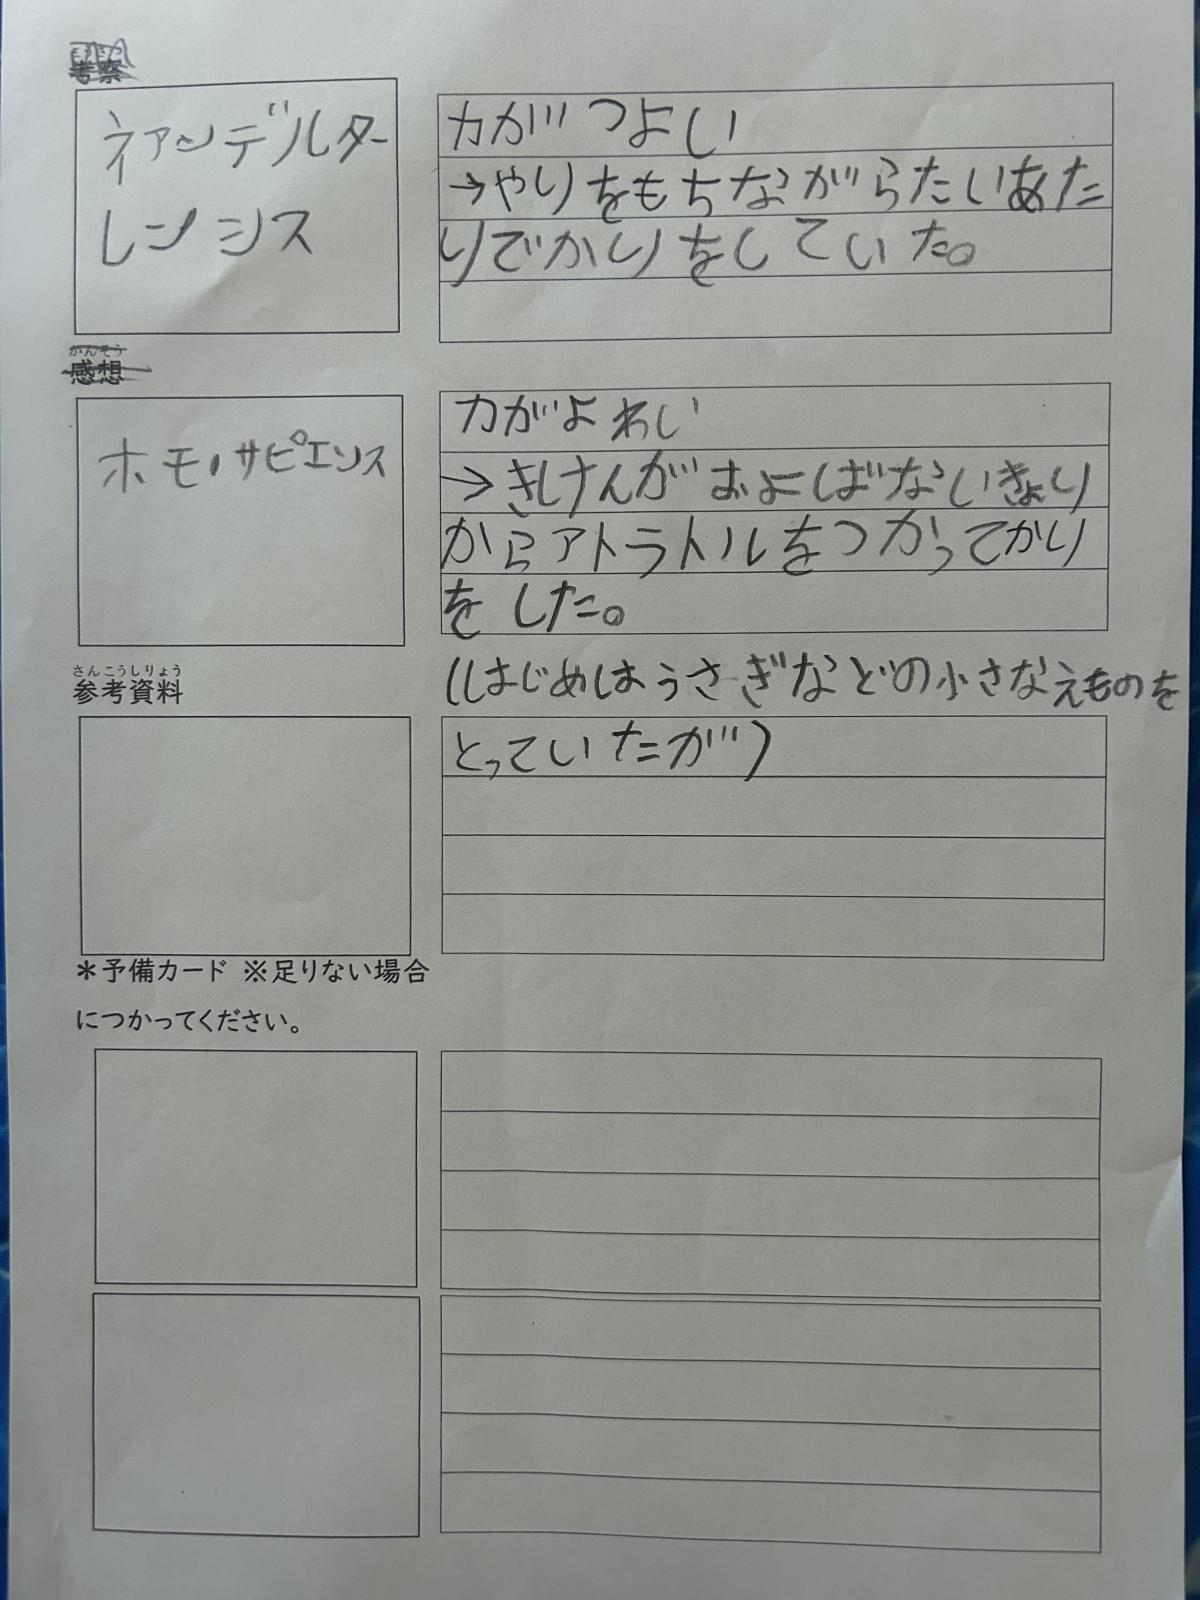 考察
ネアンデルター
レンシス
力がつよい
→やりをもちながらたいあた
りでかりをしていた。
かんそう
感想
ホモ・サピエンス
力がよわい
→きけんがおよばないきょり
からアトラトルをつかってかり
をした。
(はじめはうさぎなどの小さなえものを
とっていたが)
さんこうしりょう
参考資料
*予備カード ※足りない場合
につかってください。